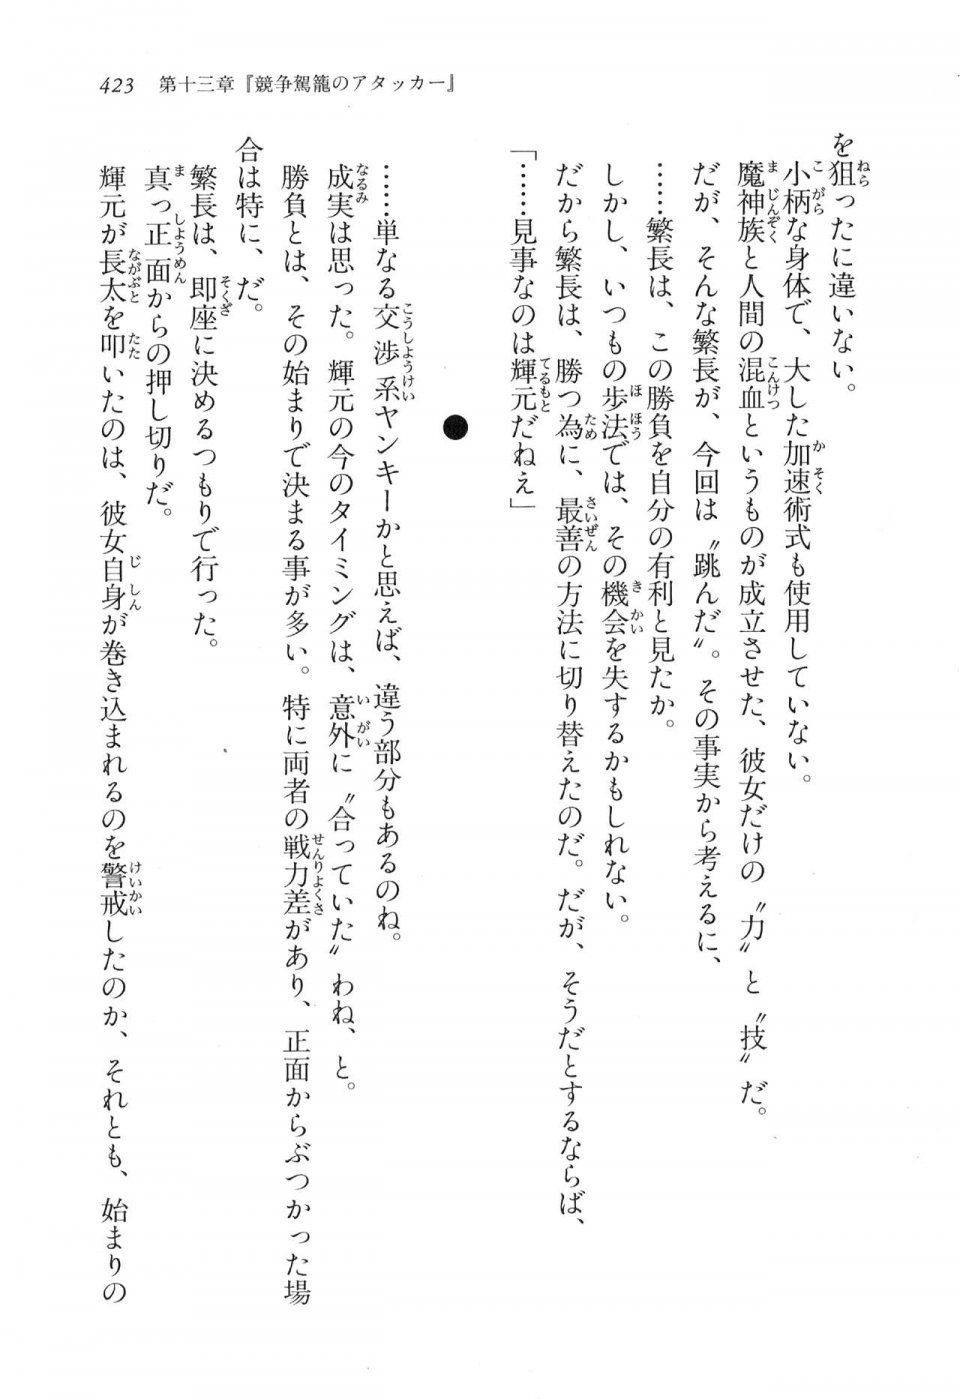 423　第十三章『競争駕籠のアタッカー』
を狙ったに違いない。
小柄な身体で、大した加速術式も使用していない。
魔神族と人間の混血というものが成立させた、彼女だけの〝力〟と〝技〟だ。
だが、そんな繁長が、今回は〝跳んだ〟。その事実から考えるに、
……繁長は、この勝負を自分の有利と見たか。
しかし、いつもの歩法では、その機会を失するかもしれない。
だから繁長は、勝つ為に、最善の方法に切り替えたのだ。だが、そうだとするならば、
「……見事なのは輝元だねえ」
●
……単なる交渉系ヤンキーかと思えば、違う部分もあるのね。
成実は思った。輝元の今のタイミングは、意外に〝合っていた〟わね、と。
勝負とは、その始まりで決まる事が多い。特に両者の戦力差があり、正面からぶつかった場
合は特に、だ。
繁長は、即座に決めるつもりで行った。
真っ正面からの押し切りだ。
輝元が長太を叩いたのは、彼女自身が巻き込まれるのを警戒したのか、それとも、始まりの